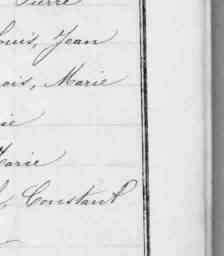 Pierre
ouis, Jean
ois, Marie
ie
Marie
Constant